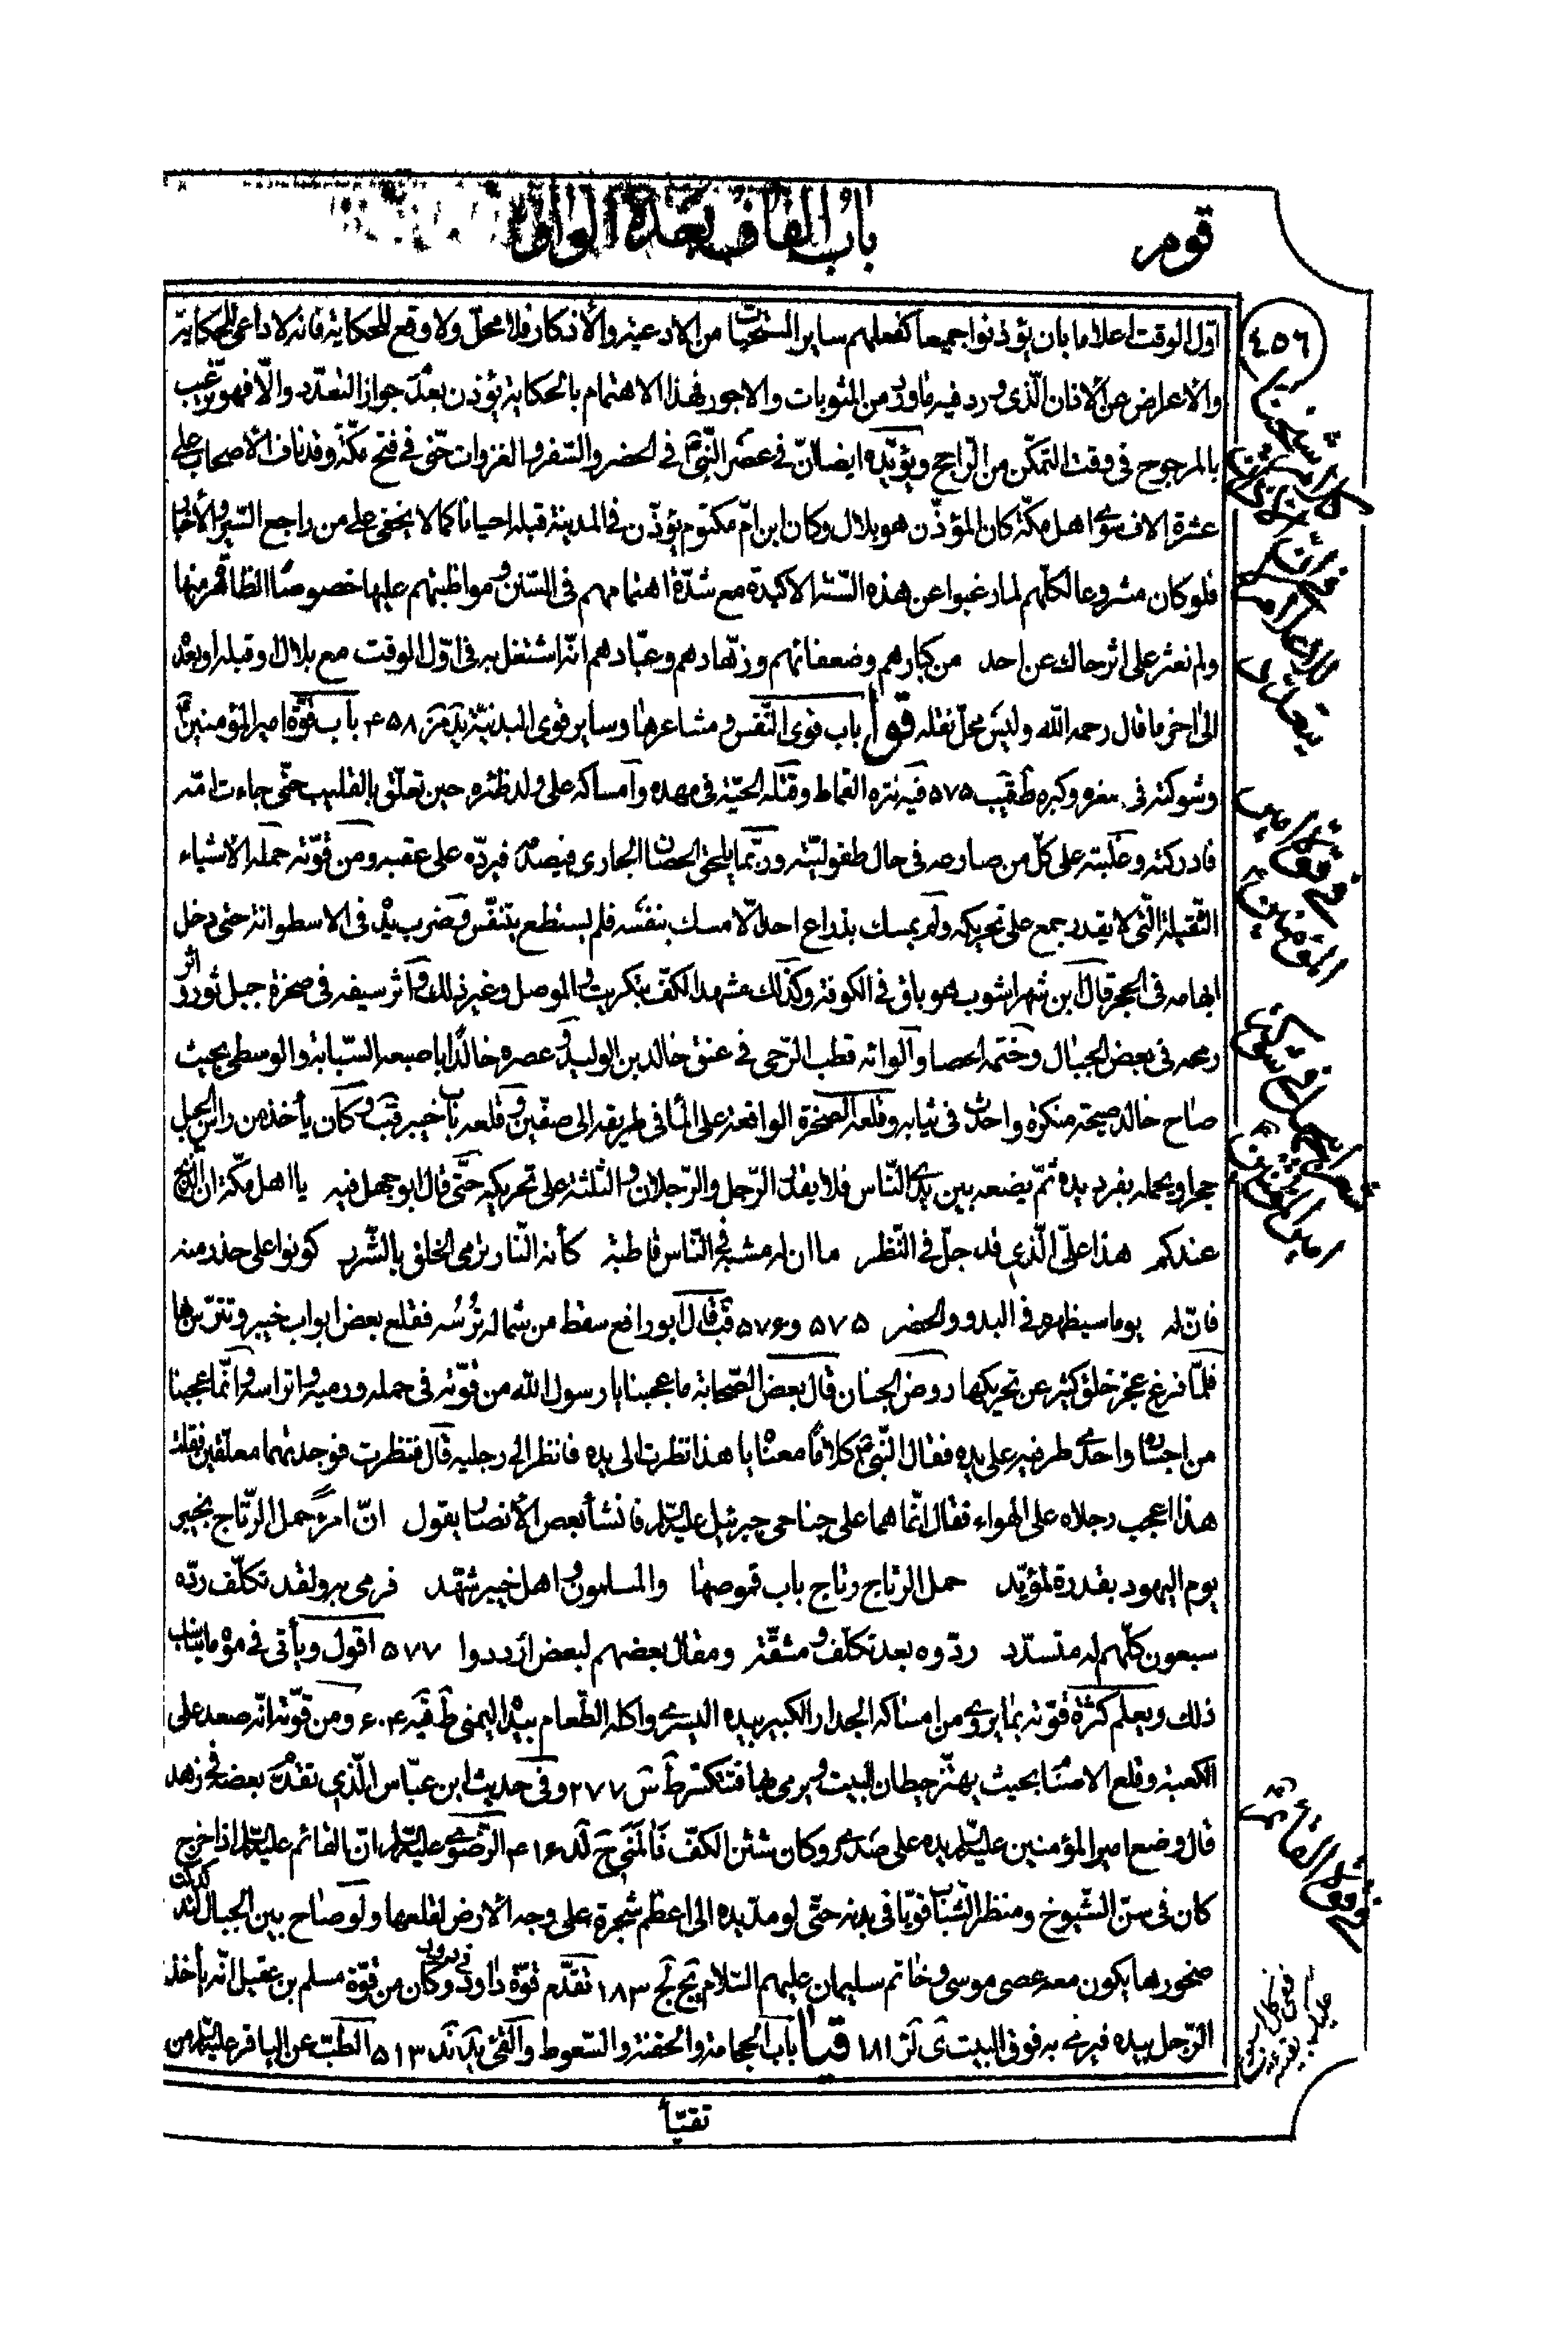 قوم
باب القاف بعده الواو
٤٥٦
اوّل الوقت اعلاما بان يؤذنوا جميعا كفعلهم ساير المستحبّات من الادعية والأذكار فلا محلّ ولا وقع للحكاية فانه لا داعى للحكاية
والاعراض عن الاذان الّذى ورد فيه ما ورد من المثوبات والاجور فهذا الاهتمام بالحكاية يؤذن بعدم جواز التعدّد والّا فهو ترغيب
بالمرجوح فى وقت التمكّن من الرّاجح ويؤيّده ايضا انّ فى عصر النّبىّ فى الحضر والسّفر والغزوات حتّى فى فتح مكّة وقد ناف الأصحاب على
عشرة الاف سوى اهل مكّة كان المؤذّن هو بلال وكان ابن امّ مكتوم يؤذّن فى المدينة قبله احيانا كما لا يخفى على من راجع السّير والأخبار
فلو كان مشروعا لكلّهم لما رغبوا عن هذه السّنّة الاكيدة مع شدّة اهتمامهم فى السّنن ومواظبتهم عليها خصوصًا الظاهر منها
ولم نعثر على اثر حاك عن احد من كبارهم وضعفائهم وزهّادهم وعبّادهم انّه اشتغل به فى اوّل الوقت مع بلال او قبله او بعده
الى اخر ما قال رحمه الله وليس محلّ نقله قول باب قوى النّفس ومشاعرها وساير قوى البدنيّة يد مز ٤٥٨ باب قوّة امير المؤمنين
وشوكته فى صغره وكبره ط قيب ٥٧٥ فيه نتره القماط وقتله الحيّة فى مهده وامساكه على ولد ظئره حين تعلّق بالقليب حتّى جاءت امّه
فادركته وغلبته على كلّ من صارعه فى حال طفوليّته وربّما يلحق الحصان الجارى فيصدمه فيردّه على عقبه ومن قوّته حمله الأشياء
الثّقيلة الّتى لا يقدر جمع على تحريكه ولم يمسك بذراع احد الّا مسك بنفسه فلم يستطع يتنفّس وضرب يده فى الاسطوانة حتى دخل
ابهامه فى الحجر قال ابن شهراشوب هو باق فى الكوفة وكذلك مشهد الكفّ بتكريت والموصل وغير ذلك واثر سيفه فى صخرة جبل ثور واثر
رمحه فى بعض الجبال وختمه الحصا والوائه قطب الرّحى فى عنق خالد بن الوليد وعصره خالدًا باصبعه السّبابة والوسطى بحيث
صاح خالد صيحة منكرة واحدث فى ثيابه وقلعه الصّخرة الواقعة على الماء فى طريقه الى صفّين وقلعه باب خيبر قب وكان يأخذ من رأس الجبل
حجرا ويحمله بفرد يده ثمّ يضعه بين يدى النّاس فلا يقدر الرّجل والرّجلان والثلثة على تحريكه حتّى قال ابوجهل فيه يا اهل مكّة ان الذّبح
عندكم هذا علىّ الّذى قد جلّ فى النّظر ما ان له مشبه فى النّاس قاطبة كأنه النّار ترمى الخلق بالشّرر كونوا على حذر منه
فانّ له يوما سيظهره فى البدو والحضر ٥٧٥ و ٥٧٦ قب قال ابو رافع سقط من شماله ترسه فقلع بعض ابواب خيبر وتترّس بها
فلمّا فرغ عجز خلق كثير عن تحريكها روض الجنان قال بعض الصّحابة ما عجبنا يا رسول الله من قوّته فى حمله ورميه واتراسه وانّما عجبنا
من اجساره واحدى طرفيه على يده فقال النّبىّ كلامًا معناه يا هذا نظرت الى يده فانظر الى رجليه قال فنظرت فوجدتهما معلّقين فقلت
هذا اعجب رجلاه على الهواء فقال انّما هما على جناحى جبرئيل عليه السّلام فانشأ بعض الأنصار يقول انّ امرءً حمل الرّتاج بخيبر
يوم اليهود بقدرة لمؤيّد حمل الرتاج رتاج باب قموصها والمسلمون واهل خيبر شهّد فرمى به ولقد تكلّف ردّه
سبعون كلّهم له متسدّد ردّوه بعد تكلّف ومشقّة ومقال بعضهم لبعض ازددوا ٥٧٧ اقول ويأتى فى موه ما يناسب
ذلك ويعلم كثرة قوّته بما يروى من امساكه الجدار الكبير بيده اليسرى واكله الطّعام بيده اليمنى ط قيه ٦٠٤ ومن قوّته انّه صعد على
الكعبة وقلع الاصنام بحيث يهتزّ حيطان البيت ويرمى بها فتنكسر ط س ٢٧٧ وفى حديث ابن عبّاس الّذى تقدّم بعضه فى زهد
قال وضع امير المؤمنين عليه السّلام يده على صدرى وكان شثن الكفّ فآلمنى ج لد ٤١٦ الرّضوىّ عليه السّلام انّ القائم عليه السّلام اذا خرج
كان فى سنّ الشّيوخ ومنظر الشّبّاب قويّا فى بدنه حتّى لو مدّ يده الى اعظم شجرة على وجه الأرض لقلعها ولو صاح بين الجبال لتدكدكت
صخورها يكون معه عصى موسى وخاتم سليمان عليهم السّلام يج لج ١٨٣ تقدّم قوّة داود فى دود وكان من قوّة مسلم بن عقيل انّه يأخذ
الرّجل بيده فيرمى به فوق البيت ى لز ١٨١ قيأ باب الحجامة والحقنة والسّعوط والقئ يد ند ٥١٣ الطّبّ عن الباقر عليه السّلام من
تقيّأ